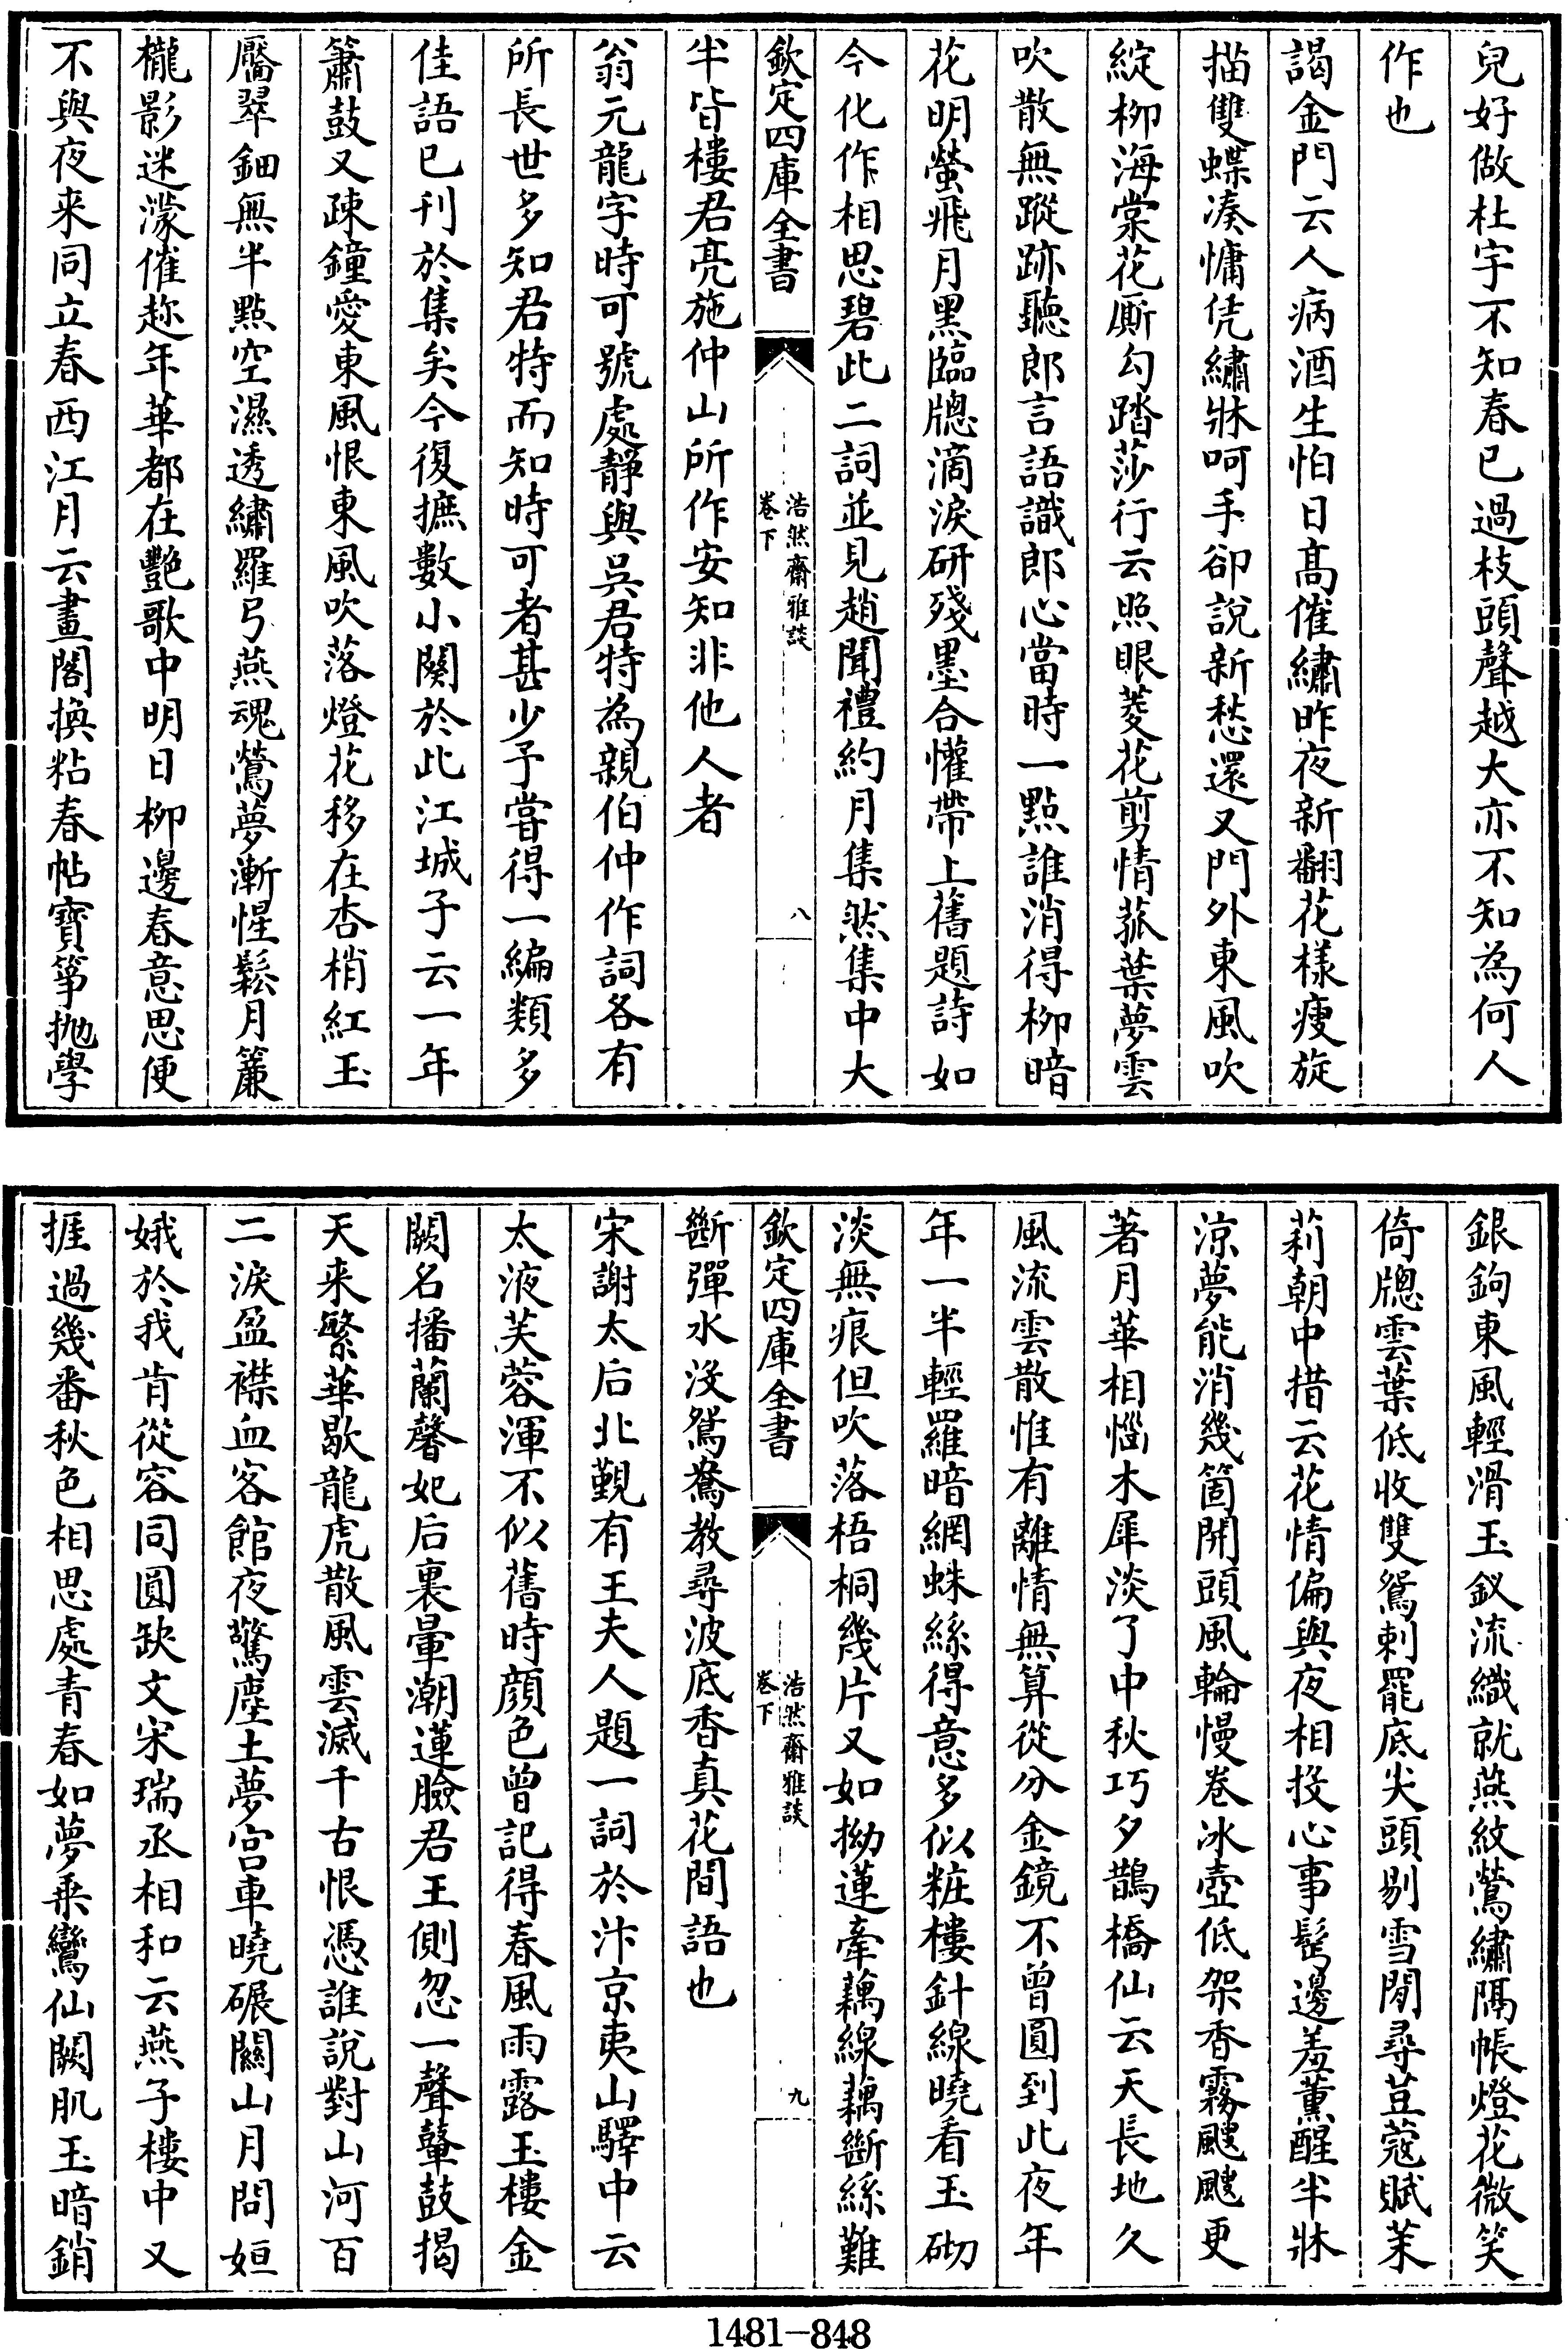 兒好做杜宇不知春已過枝頭聲越大亦不知為何人
作也
謁金門云人病酒生怕日高催繡昨夜新翻花樣瘦旋
描雙蝶湊慵凭繡牀呵手卻説新愁還又門外東風吹
綻柳海棠花厮勾踏莎行云照眼菱花剪情菰葉夢雲
吹散無蹤跡聽郎言語識郎心當時一點誰消得柳暗
花明螢飛月黑臨牕滴淚研殘墨合懽帶上舊題詩如
今化作相思碧此二詞並見趙聞禮約月集然集中大
欽定四庫全書
浩然齋雅談
卷下
八
半皆樓君亮施仲山所作安知非他人者
翁元龍字時可號處靜與吳君特為親伯仲作詞各有
所長世多知君特而知時可者甚少予嘗得一編類多
佳語已刊於集矣今復摭數小闋於此江城子云一年
簫鼓又疎鐘愛東風恨東風吹落燈花移在杏梢紅玉
靨翠鈿無半點空濕透繡羅弓燕魂鶯夢漸惺鬆月簾
櫳影迷濛催趂年華都在艷歌中明日柳邊春意思便
不與夜来同立春西江月云畫閣換粘春帖寶箏抛學
銀鉤東風輕滑玉釵流織就燕紋鶯繡隔帳燈花微笑
倚牕雲葉低收雙鴛刺罷底尖頭剔雪閒尋荳蔻賦茉
莉朝中措云花情偏與夜相投心事髩邊羞薰醒半牀
涼夢能消幾箇開頭風輪慢卷冰壺低架香霧颼颼更
著月華相惱木犀淡了中秋巧夕鵲橋仙云天長地久
風流雲散惟有離情無算從分金鏡不曾圓到此夜年
年一半輕羅暗網蛛絲得意多似粧樓針線曉看玉砌
淡無痕但吹落梧桐幾片又如拗蓮牽藕線藕斷絲難
欽定四庫全書
浩然齋雅談
卷下
九
斷彈水沒鴛鴦教尋波底香真花間語也
宋謝太后北覲有王夫人題一詞於汴京夷山驛中云
太液芙蓉渾不似舊時顔色曾記得春風雨露玉樓金
闕名播蘭馨妃后裏暈潮蓮臉君王側忽一聲鼙鼓揭
天来繁華歇龍虎散風雲滅千古恨憑誰說對山河百
二淚盈襟血客館夜驚塵土夢宫車曉碾關山月問姮
娥於我肯從容同圓缺文宋瑞丞相和云燕子樓中又
捱過幾番秋色相思處青春如夢乘鸞仙闕肌玉暗銷
1481-848